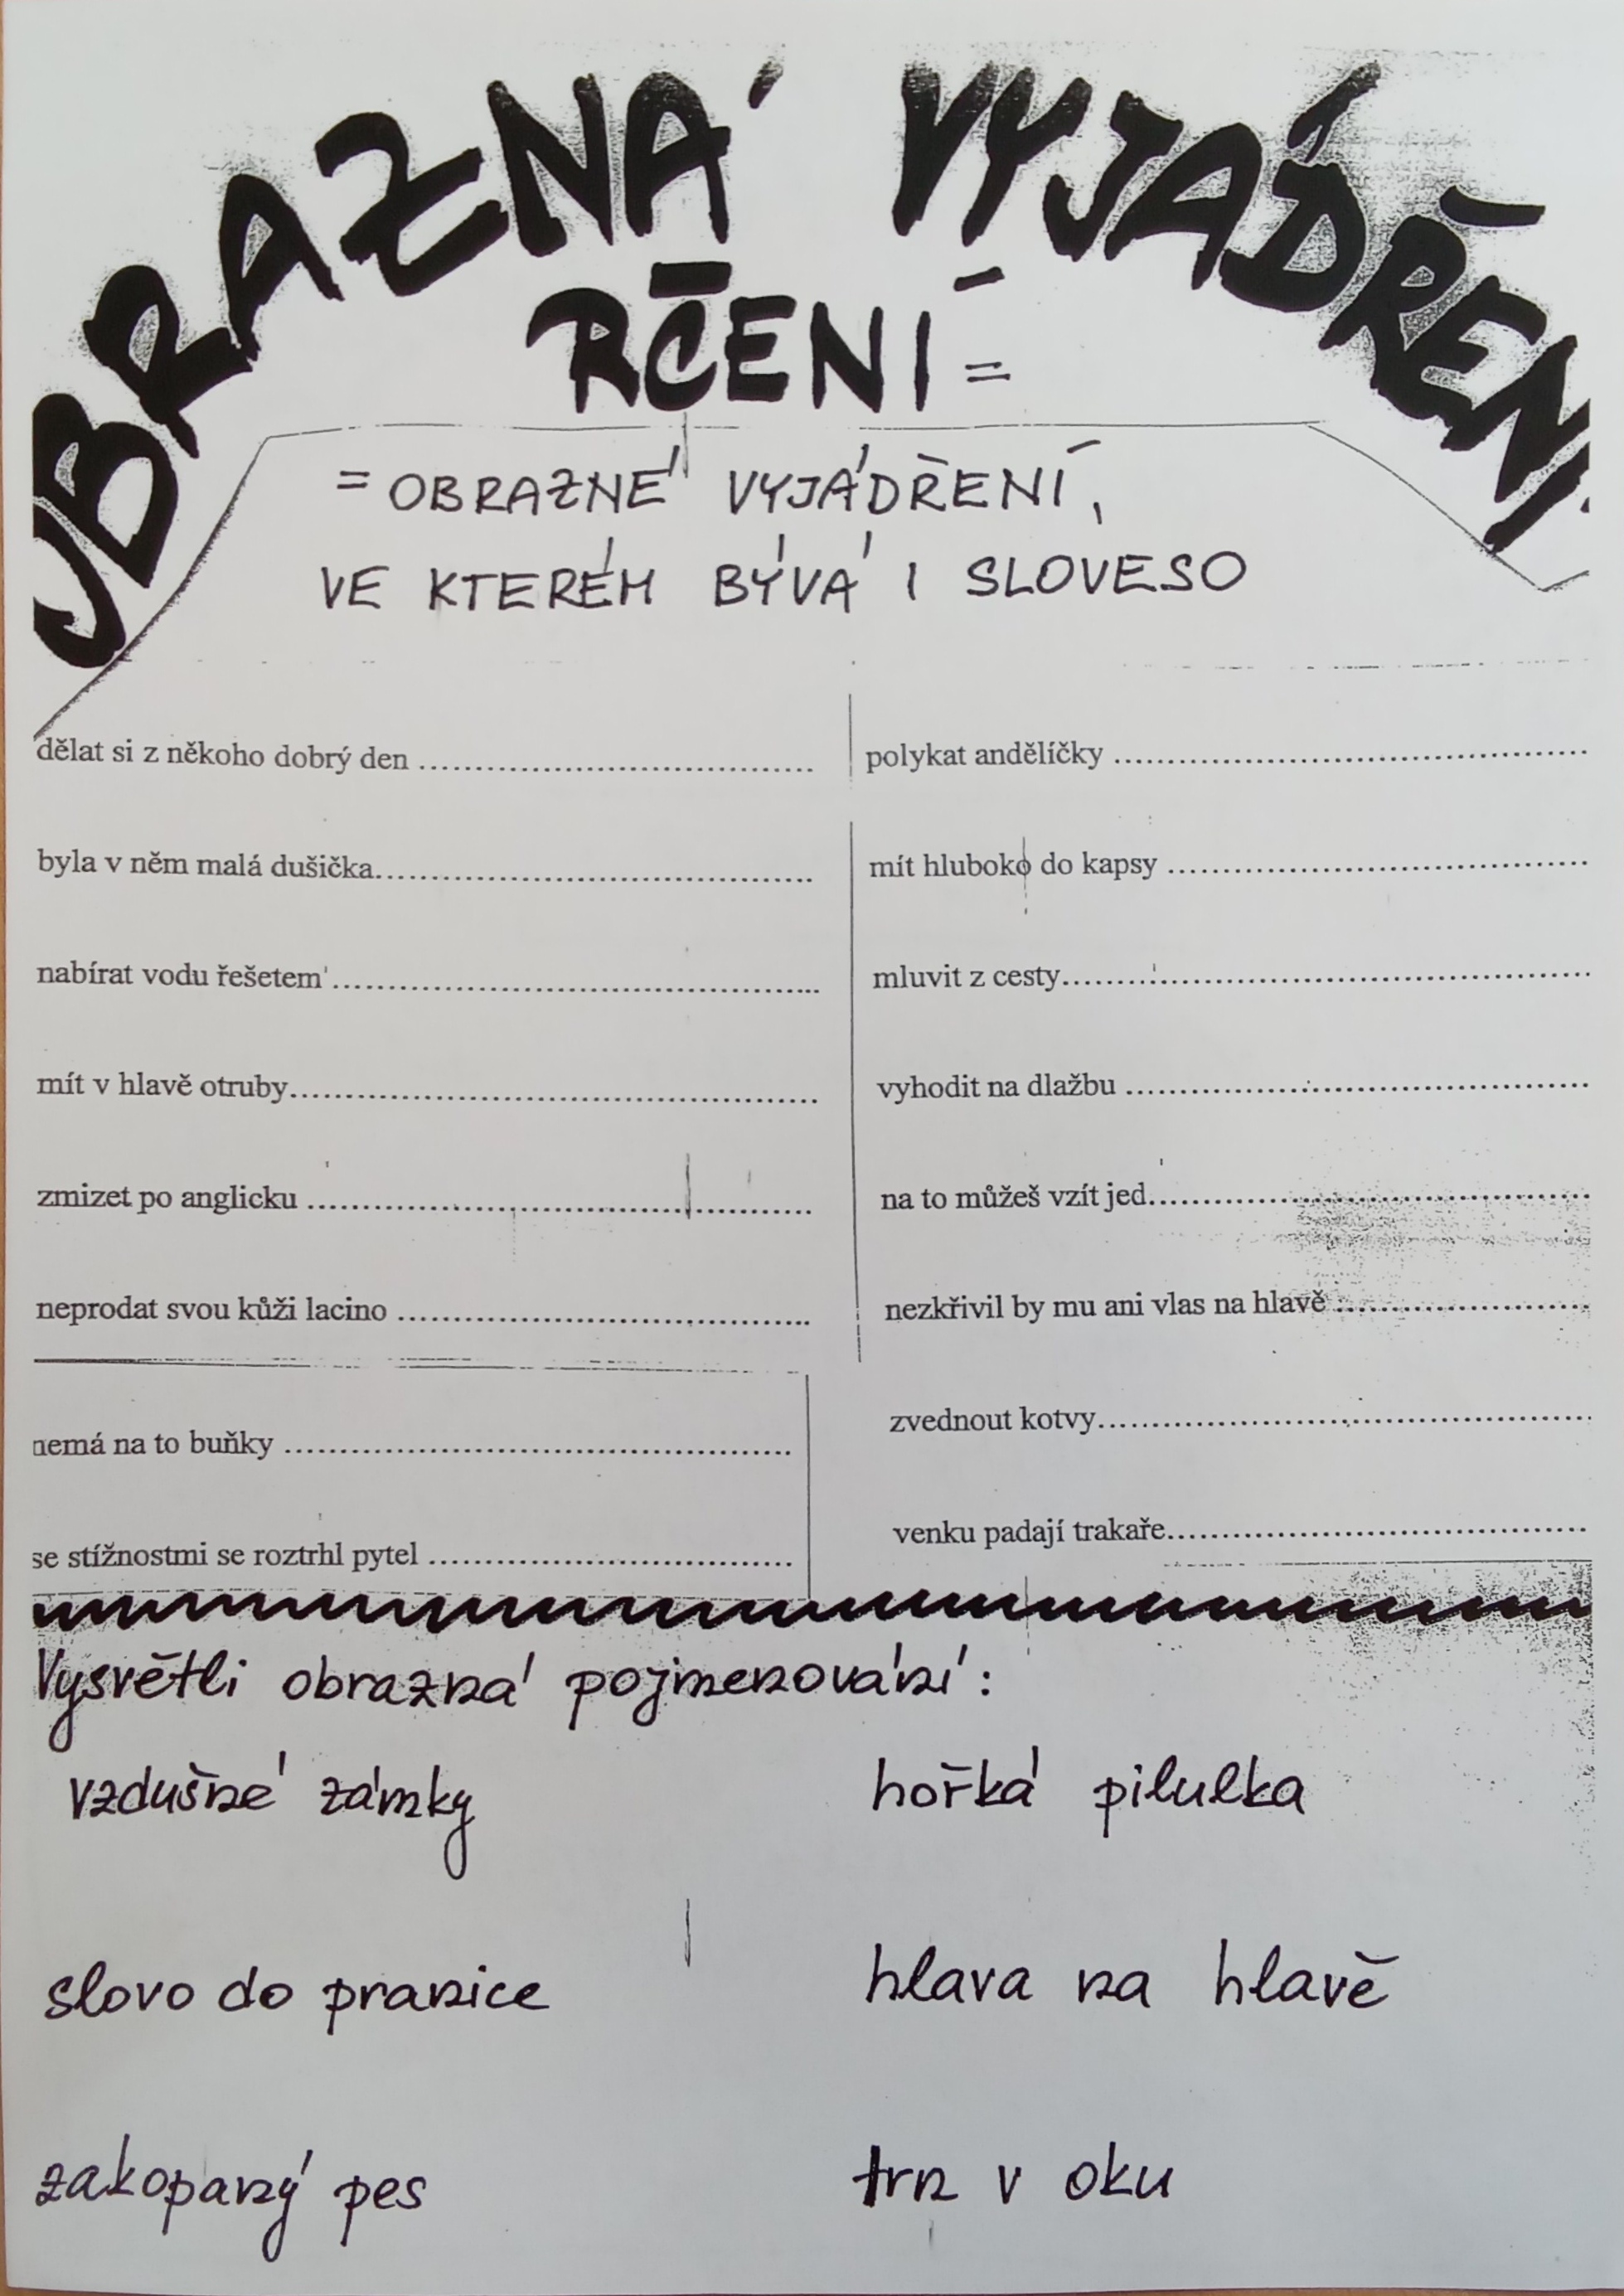 OBRAZNÁ VYJÁDŘENÍ
RČENÍ =
= OBRAZNÉ VYJÁDŘENÍ,
VE KTERÉM BÝVÁ I SLOVESO
dělat si z někoho dobrý den ........................................
polykat andělíčky ........................................
byla v něm malá dušička........................................
mít hluboko do kapsy ........................................
nabírat vodu řešetem ........................................
mluvit z cesty........................................
mít v hlavě otruby........................................
vyhodit na dlažbu ........................................
zmizet po anglicku ........................................
na to můžeš vzít jed........................................
neprodat svou kůži lacino ........................................
nezkřivil by mu ani vlas na hlavě ........................................
nemá na to buňky ........................................
zvednout kotvy........................................
se stížnostmi se roztrhl pytel ........................................
venku padají trakaře........................................
Vysvětli obrazná pojmenování:
vzdušné zámky
hořká pilulka
slovo do pranice
hlava na hlavě
zakopaný pes
trn v oku